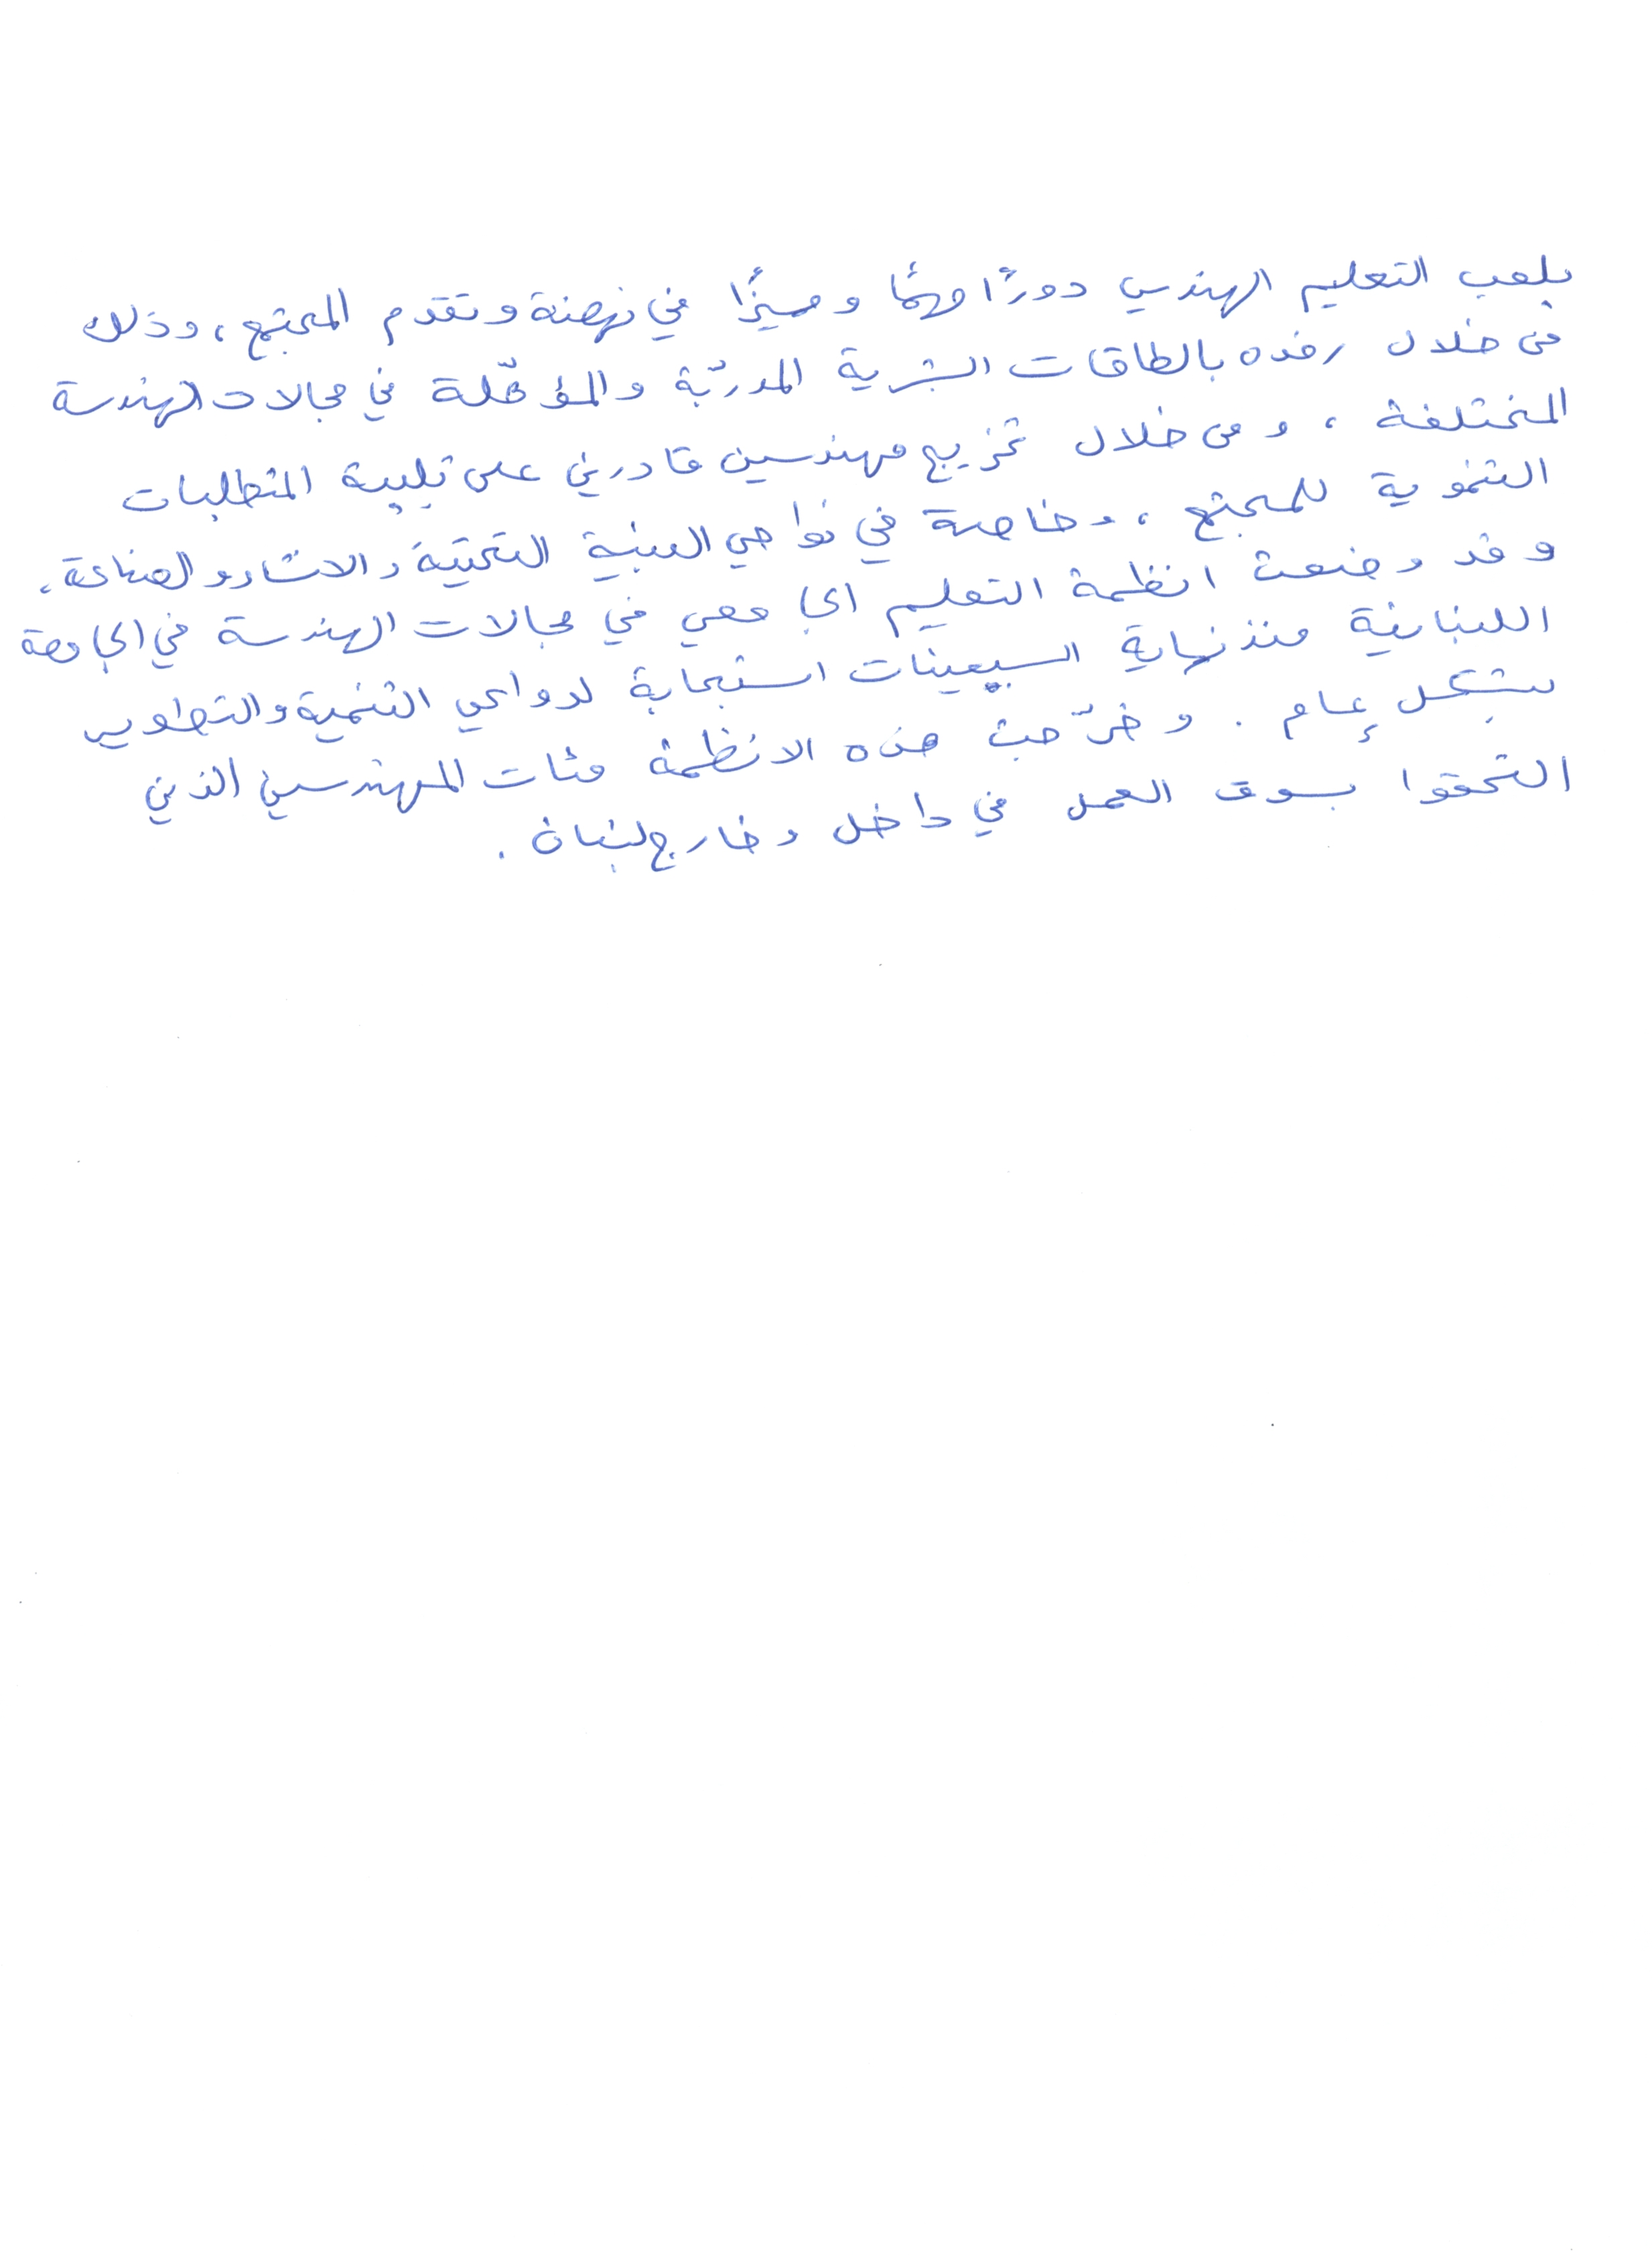 يلعب التعليم الهندسي دورًا مهمًا ومميزًا في نهضة وتقدم المجتمع، وذلك
من خلال رفده بالطاقات البشرية المدرّبة والمؤهّلة في مجالات الهندسة
المختلفة، ومن خلال تخريج مهندسين قادرين على تلبية المتطلبات
التنموية للمجتمع، وخاصة في نواحي البنية التحتية والانشاء والصناعة.
وقد وضعت انظمة التعليم الجامعي في مجالات الهندسة في الجامعة
اللبنانية منذ نهاية السبعينات استجابة لدواعي التنمية والتطوير
بشكل عام. وخرّجت هذه الانظمة مئات المهندسين الذين
التحقوا بسوق العمل في داخل وخارج لبنان.